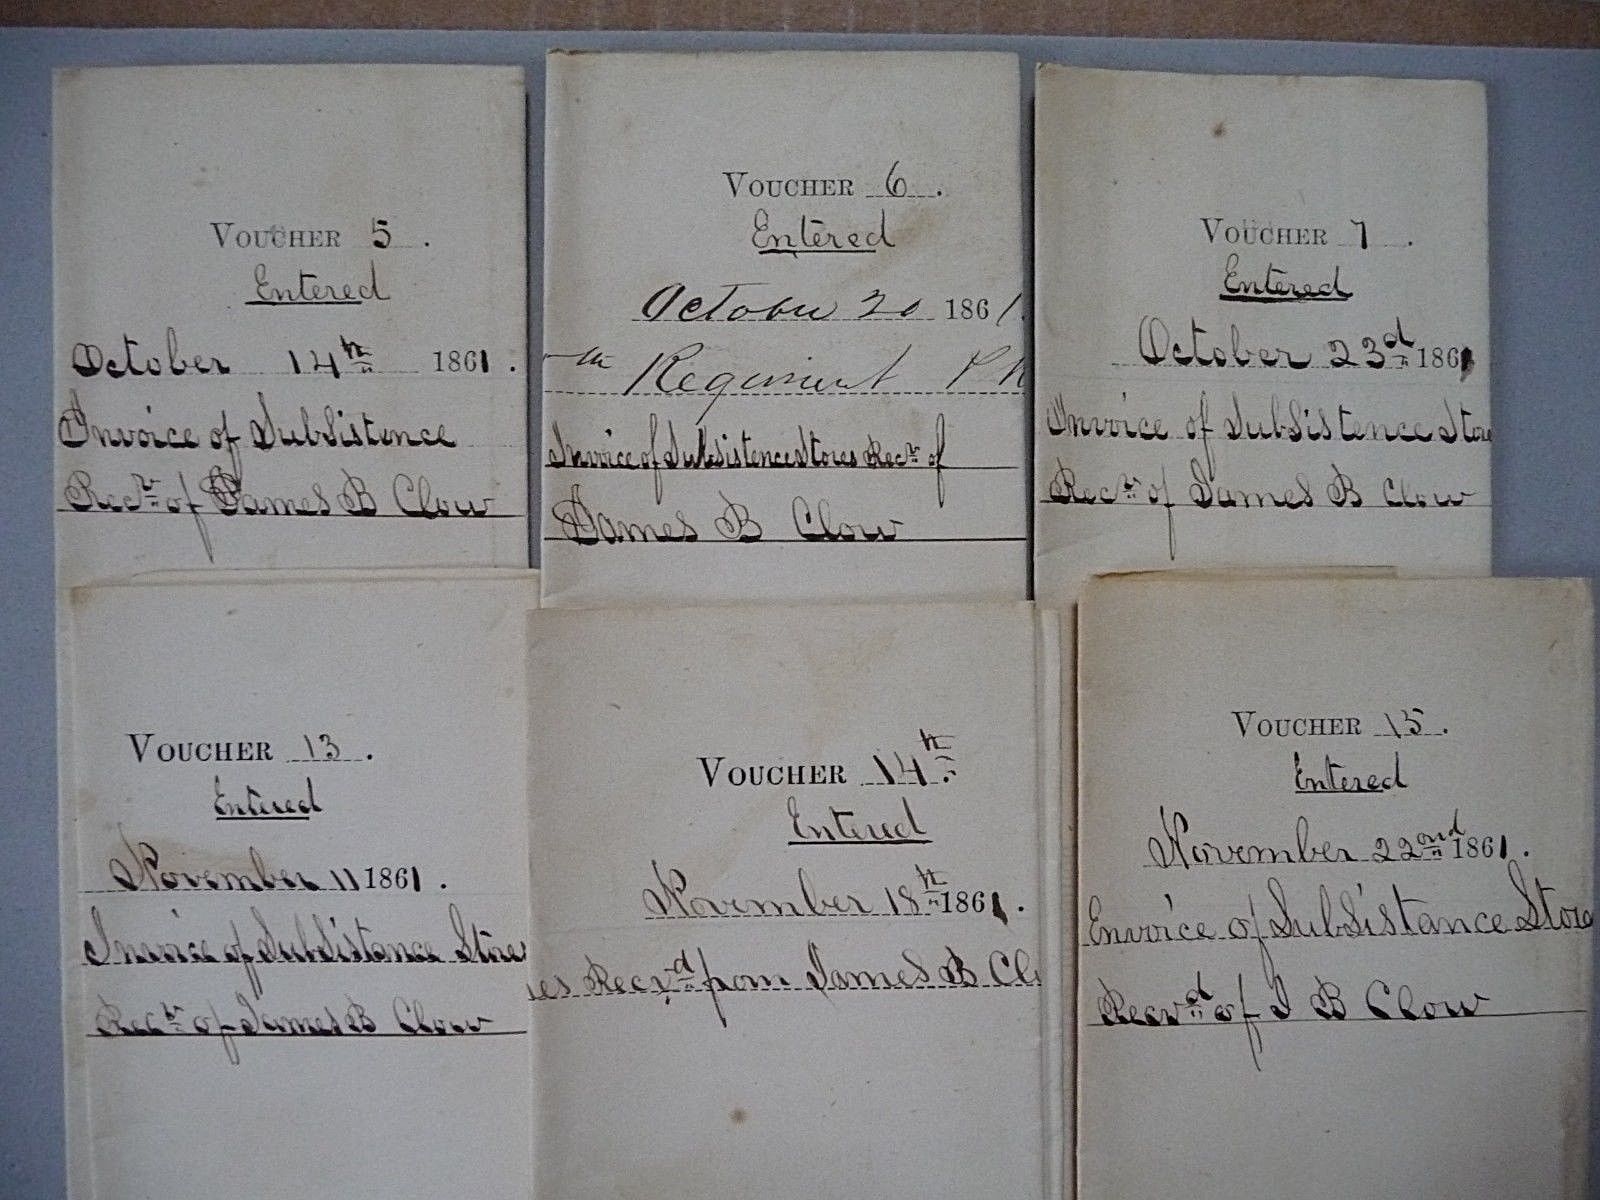 VOUCHER 5.
Entered
October 14th 1861.
Invoice of Subsistence
Recd of James B Clow
VOUCHER 6.
Entered
October 20 1861.
Regiment
Invoice of Subsistence Stores Recd of
James B Clow
VOUCHER 7.
Entered
October 23d 1861
Invoice of Subsistence Store
Recd of James B Clow
VOUCHER 13.
Entered
November 11 1861.
Invoice of Subsistance Stores
Recd of James B Clow
VOUCHER 14th.
Entered
November 18th 1861.
es Recvd from James B Clo
VOUCHER 15.
Entered
November 22nd 1861.
Envoice of Subsistance Store
Recvd of J B Clow